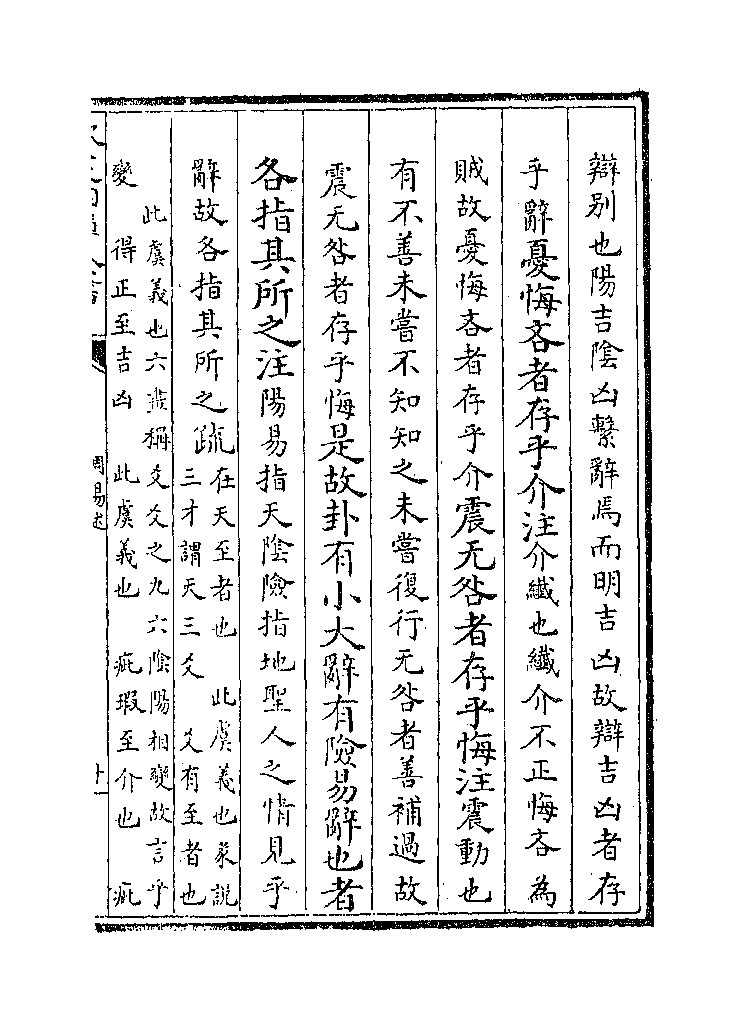 辯别也陽吉隂凶繫辭焉而明吉凶故辯吉凶者存
乎辭憂悔吝者存乎介注介纎也纎介不正悔吝為
賊故憂悔吝者存乎介震无咎者存乎悔注震動也
有不善未嘗不知知之未嘗復行无咎者善補過故
震无咎者存乎悔是故卦有小大辭有險易辭也者
各指其所之注陽易指天隂險指地聖人之情見乎
辭故各指其所之疏
在天至者也　此虞義也彖說
三才謂天三爻　爻有至者也
此虞義也六畫稱爻爻之九六隂陽相變故言乎
變　得正至吉凶　此虞義也　疵瑕至介也　疵
周易述
十一